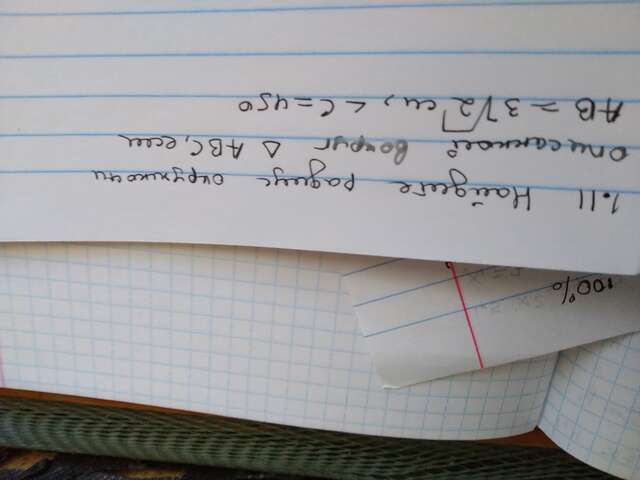 1.11 Найдите радиус окружности
описанной вокруг △ ABC, если
AB = 3√2 см, ∠C = 45°
100%